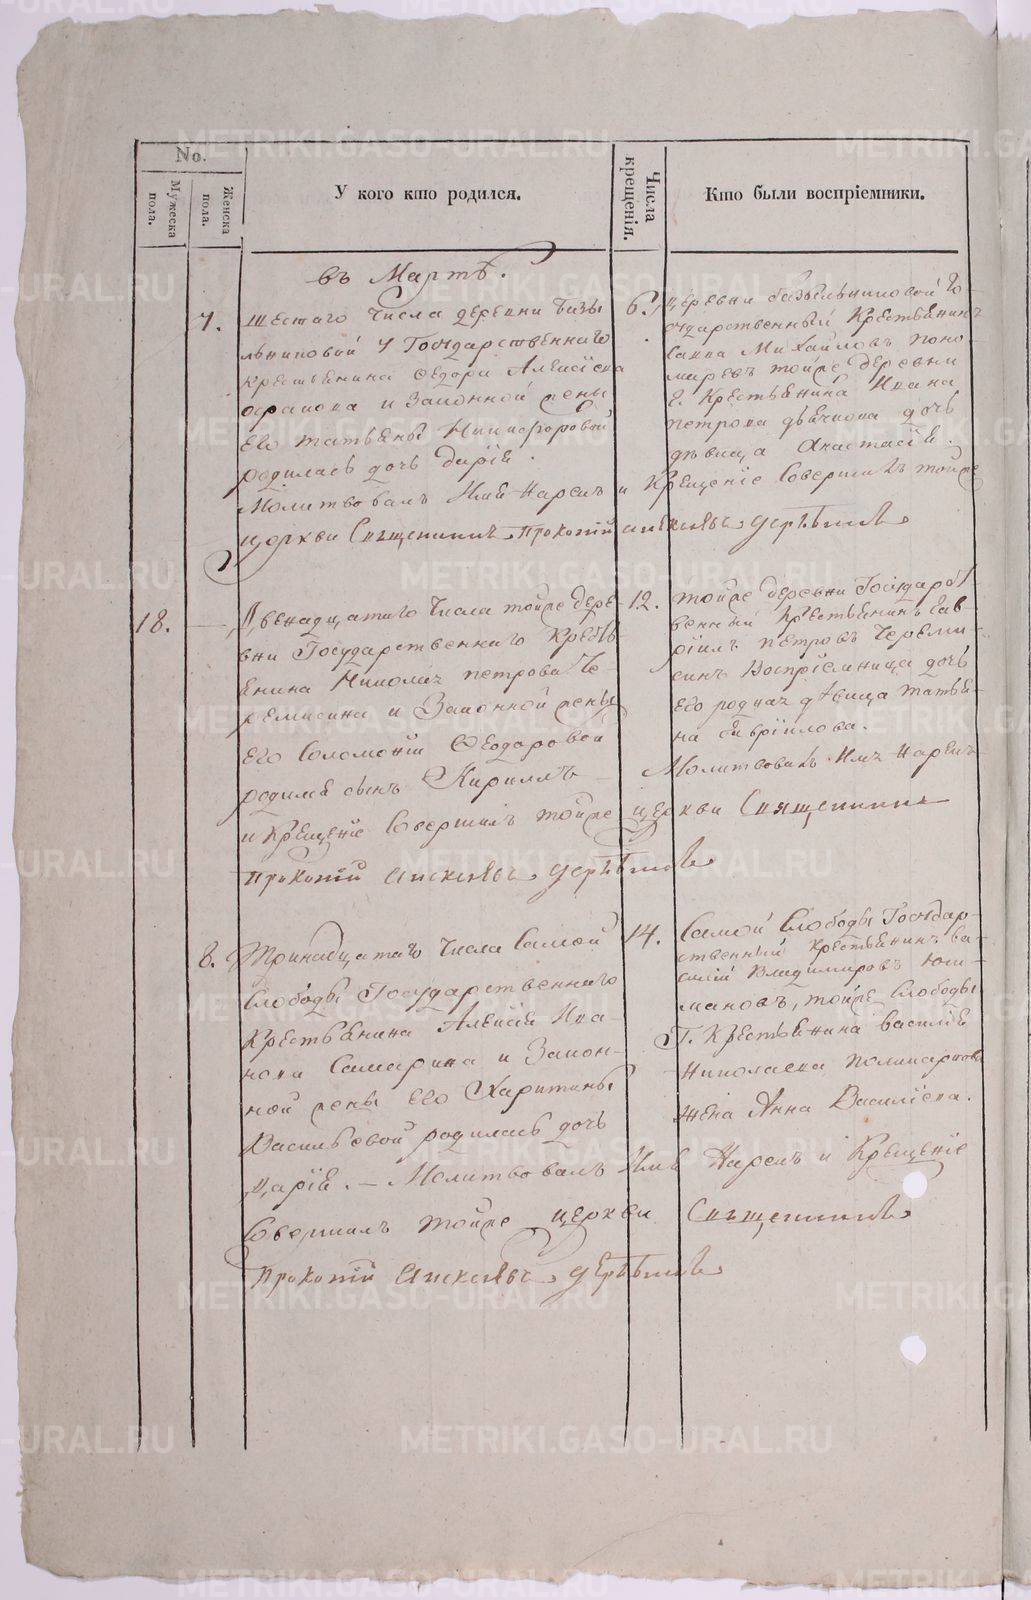 No.
Мужеска пола.
Женска пола.
У кого кто родился.
Числа крещенія.
Кто были воспріемники.
въ Мартѣ.
7.
Шестаго Числа деревни Базы
льниковой у Государственнаго
Крестьянина Ѳедора Алексіева
и Законной жены
Его Татьяны Никифоровой
родилась дочь Дарія.
Молитвовалъ Имя Нарекъ и Крещеніе Совершилъ тойже
церкви Священникъ Прокопій
6.
деревни базыльниковой Го-
сударственный Крестьянинъ
Савва Михайловъ Поно
маревъ тойже деревни
Г. Крестьянина Ивана
Петрова дьячкова дочь
дѣвица Анастасія.
18.
Двенадцатаго Числа тойже дере-
вни Государственнаго Кресть
янина Николая Петрова Че-
ремисина и Законной жены
Его Соломоніи Ѳеодоровой
родился сынъ Кириллъ
12.
тойже деревни Государст
венный Крестьянинъ Гав-
ріилъ Петровъ Череми-
синъ Воспріемница дочь
Его родная дѣвица Татья-
на Гавріилова.
Молитвовалъ Имя Нарекъ
и Крещеніе Совершилъ тойже церкви Священникъ
Прокопій
8.
Тринадцатаго Числа Самой
Слободы Государственнаго
Крестьянина Алексія Ива-
нова Самарина и Закон-
ной жены Его Харитины
Васильевой родилась дочь
Дарія. – Молитвовалъ Имя Нарекъ и Крещеніе
Совершилъ тойже церкви Священникъ
Прокопій
14.
Самой Слободы Государ-
ственный Крестьянинъ Ва-
силій Владимировъ Юш-
мановъ, тойже Слободы
Г. Крестьянина Василія
Николаева Поликарпова
жена Анна Василіева.
METRIKI.GASO-URAL.RU